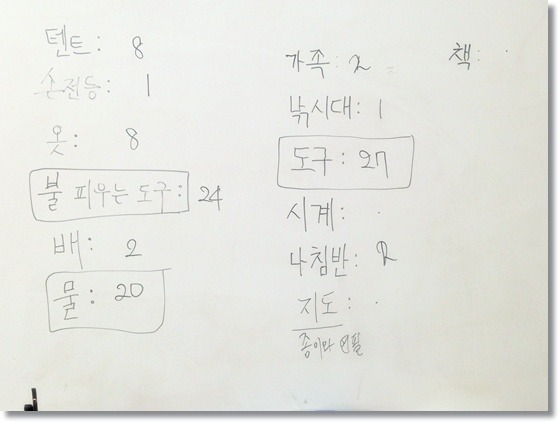 텐트: 8
손전등: 1
옷: 8
불 피우는 도구: 24
배: 2
물: 20
가족: 2
낚시대: 1
도구: 27
시계: .
나침반: 2
지도: .
종이와 연필
책: .